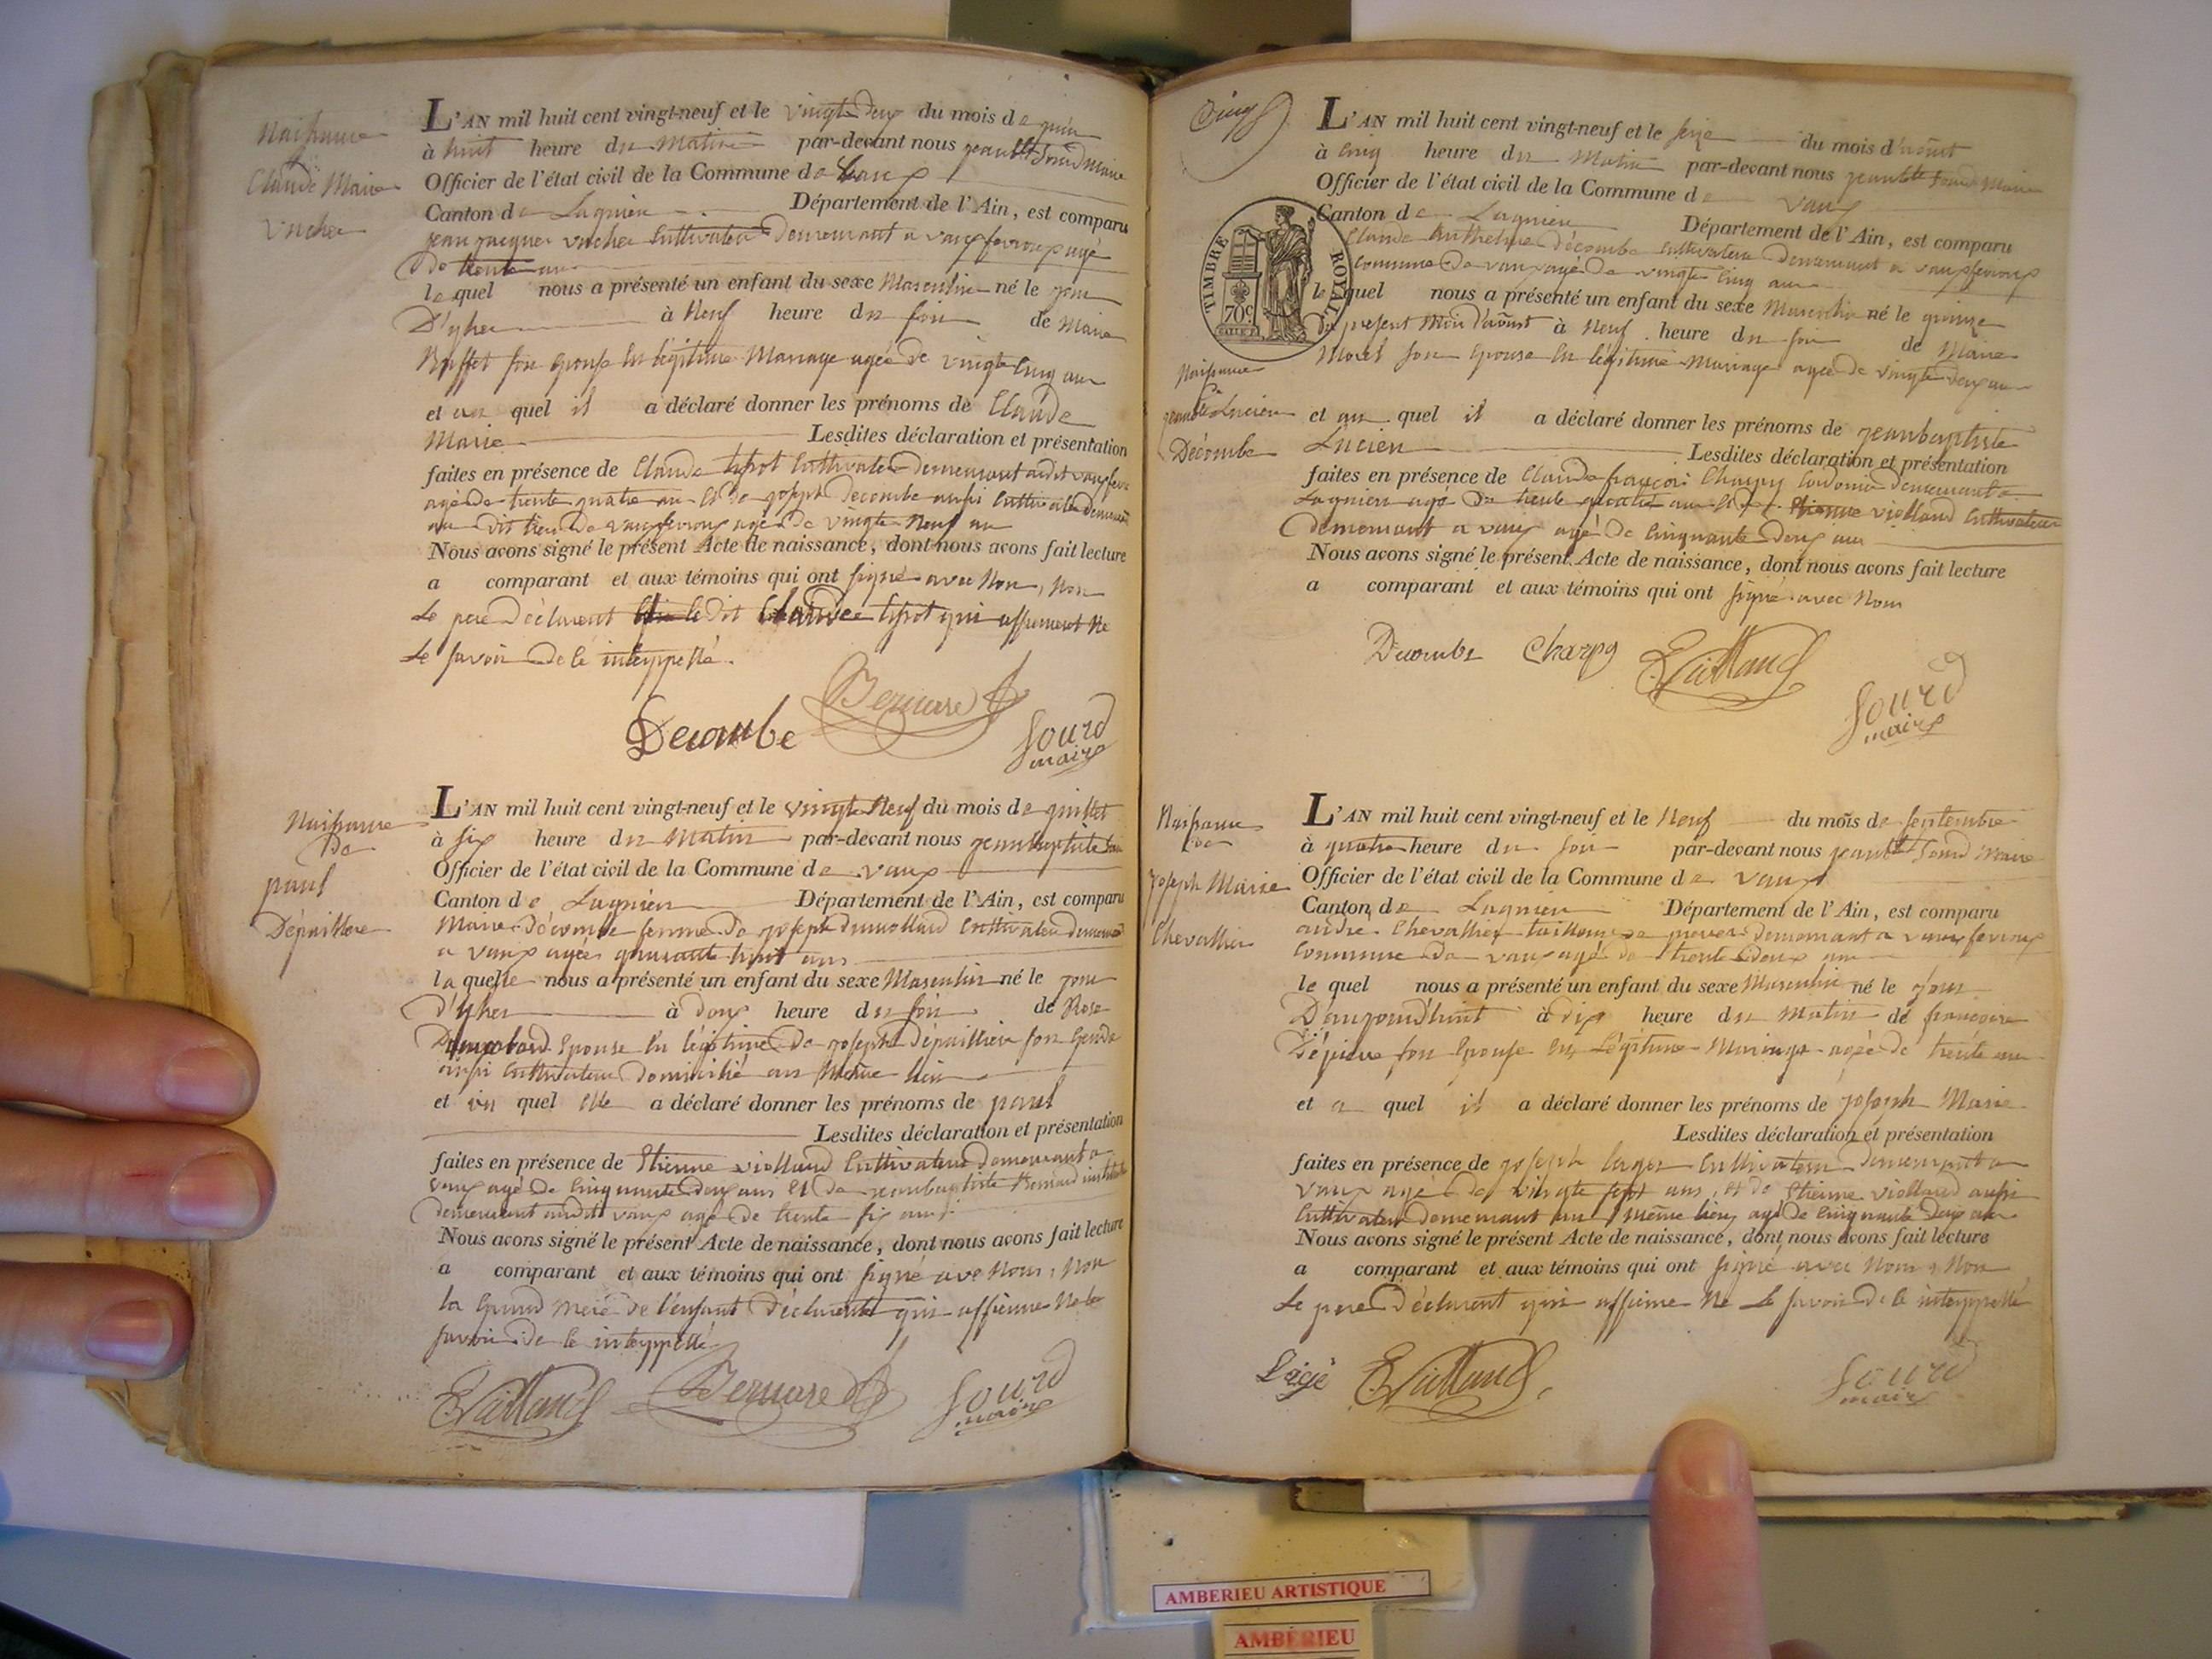 Naissance
Claude Marie
Vucher
L'AN mil huit cent vingt-neuf et le vingt deux du mois de juin
à huit heure du Matin par-devant nous jean bte Sourd Maire
Officier de l'état civil de la Commune de Vaux
Canton de Lagnieu Département de l'Ain, est comparu
jean jacques vucher Cultivateur demeurant a vaux fevroux agé
de trente ans
lequel nous a présenté un enfant du sexe Masculin né le jour
D'yher à Neuf heure du soir de Marie
Buffet son Epouse En légitime Mariage agée de vingt Cinq ans
et au quel il a déclaré donner les prénoms de Claude
Marie Lesdites déclaration et présentation
faites en présence de Claude tissot Cultivateur demeurant audit vaux fevroux
agé de trente quatre ans Et de joseph Decombe aussi Cultivateur demeurant
au dit lieu de vaux fevroux agé de vingt Neuf ans
Nous avons signé le présent Acte de naissance, dont nous avons fait lecture
a comparant et aux témoins qui ont signé avec Nous, Non
Le pere Déclarent le dit Claude tissot qui affirment Ne
Le savoir de ce interppellé.
Decombe Bernard Sourd
maire
Naissance
De
paul
Dépaillere
L'AN mil huit cent vingt-neuf et le vingt Neuf du mois de juillet
à six heure du Matin par-devant nous jean baptiste
Officier de l'état civil de la Commune de vaux
Canton de Lagnieu Département de l'Ain, est comparu
Marie Décombe femme De joseph Cultivateur demeurant
a vaux agée quarante huit ans
laquelle nous a présenté un enfant du sexe Masculin né le jour
d'yher à doux heure du soir de Rose
Epouse En légitime De joseph Dépaillier son Gendre
aussi Cultivateur domicilié au Même lieu
et au quel elle a déclaré donner les prénoms de paul
Lesdites déclaration et présentation
faites en présence de Etienne viollaud Cultivateur demeurant a
vaux agé de Cinquante deux ans Et de jean baptiste Bernard
demeurant audit vaux agé de trente six ans
Nous avons signé le présent Acte de naissance, dont nous avons fait lecture
a comparant et aux témoins qui ont signé ave Nous, Non
la Grand Mere de l'enfant Déclarente qui affirme Ne le
savoir de ce interppellé
EViallaud Bernard Sourd
maire
TIMBRE ROYAL
70c
Naissance
de
jean bte Lucien
Décombe
L'AN mil huit cent vingt-neuf et le seize du mois d'août
à Cinq heure du Matin par-devant nous jean bte Sourd Maire
Officier de l'état civil de la Commune de vaux
Canton de Lagnieu Département de l'Ain, est comparu
Claude Anthelme Décombe Cultivateur demeurant a vaux fevroux
Commune De vaux agé De vingt Cinq ans
lequel nous a présenté un enfant du sexe Masculin né le quinze
du présent Mois d'août à Neuf heure du soir de Marie
Morel son Epouse En légitime Mariage agée de vingt deux ans
et au quel il a déclaré donner les prénoms de jean baptiste
Lucien Lesdites déclaration et présentation
faites en présence de Claude françois Charpy Cordonier demeurant a
Lagnieu agé De trente quatre ans Et d'Etienne viollaud Cultivateur
demeurant a vaux agé de Cinquante deux ans
Nous avons signé le présent Acte de naissance, dont nous avons fait lecture
a comparant et aux témoins qui ont signé avec Nous
Decombe Charpy EViallaud
Sourd
maire
Naissance
de
joseph Marie
Chevallier
L'AN mil huit cent vingt-neuf et le Neuf du mois de septembre
à quatre heure du soir par-devant nous jean bte Sourd Maire
Officier de l'état civil de la Commune de vaux
Canton de Lagnieu Département de l'Ain, est comparu
andré Chevallier tailleur de pierre demeurant a vaux fevroux
Commune de vaux agé de trente deux ans
lequel nous a présenté un enfant du sexe Masculin né le jour
D'aujourd'huit à dix heure du Matin de françoise
son Epouse En Légitime Mariage agée de trente ans
et a quel il a déclaré donner les prénoms de joseph Marie
Lesdites déclaration et présentation
faites en présence de joseph Cultivateur demeurant a
vaux agé de vingt sept ans, et de Etienne viollaud aussi
Cultivateur demeurant au même lieu agé de Cinquante deux ans
Nous avons signé le présent Acte de naissance, dont nous avons fait lecture
a comparant et aux témoins qui ont signé avec Nous, Non
Le pere Déclarent qui affirme Ne Le savoir de ce interppellé
EViallaud Sourd
maire
AMBERIEU ARTISTIQUE
AMBERIEU